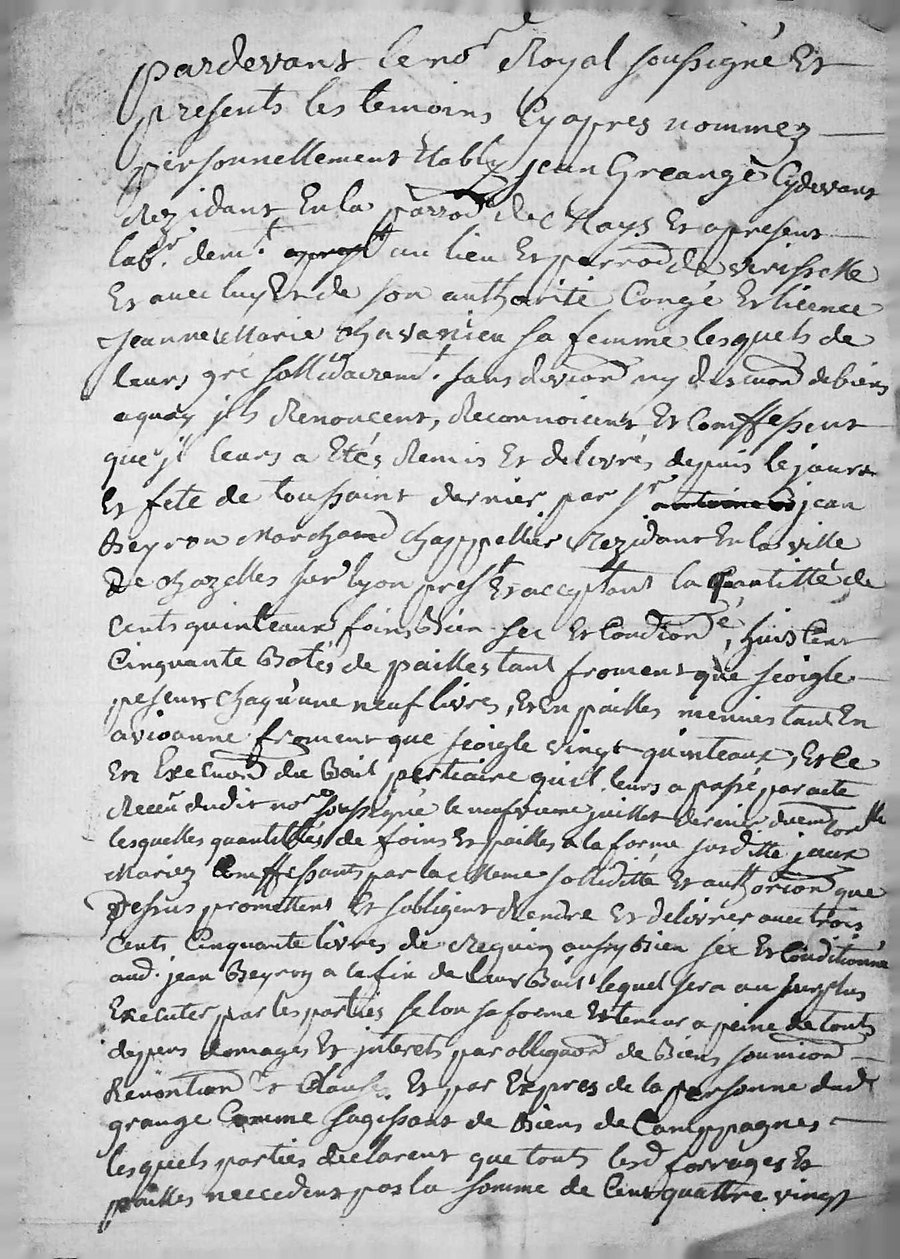 pardevant le no.re Royal soussigné Et
presents les temoins Cy apres nommez
personnellement Etably jean Greange Cydevant
Rezidant En la parro.e de Nays Et apresent
lab.r dem.t au lieu Et parroe de virisselle
Et avec luy Et de son authorité Congé Et licence
jeanne Marie Chavanieu sa femme lesquels de
leurs gré sollidairem.t sans division ny discution de biens
aquoy ils Renoncent, Reconnoissent Et Comffessent
que jl leurs a Etés Remis Et delivrés depuis le jour
Et fete de toussaint dernier par s.r jean
Beyron Marchand Chappellier Rezidant En la ville
De Chazelles sur lyon pres.t Et acceptant la quantitté de
Cents quinteaux foins Bien sec Et Condtionné, huis Cent
Cinquante Botes de pailles tant froment que seigle
pesent Chaq'une neuf livres, Et En pailles mennies tant En
avioanne froment que seigle vingt quinteaux, Et Ce
En Execution du Bail pertiaire qu'il leurs a passé par acte
Receu dudit no.re soussigné le neufvieme juillet dernier duem.t Controllé
lesquelles quantittés de foins Et pailles a la forme susditte jceux
Mariez Comffessants par la Meme solliditté Et authorion que
Dessus promettent Et sobligent Rendre Et delivrer avec trois
Cents Cinquante livres de Requin aussy Bien sec Et Conditionné
aud. jean Beyron a la fin de leur Bail lequel sera au surplus
Executer par les parties selon sa forme Et teneur a peine de touts
depens domages Et jnterets par obligaon de Biens soumion
Renontion Et Clauses Et par Expres de la personne dud.t
grange Comme sagissant de Biens de Camppagnes
lesquels parties declarent que touts lesd forrages Et
pailles neecedent pas la somme de Cent quattre vingt